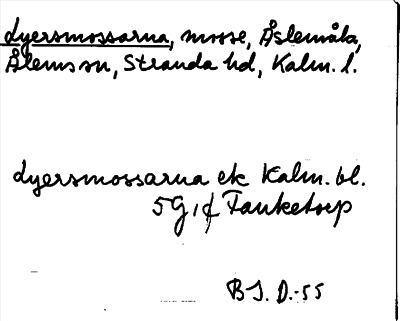 Lyersmossarna, mosse, Åslemåla,
Ålems sn, Stranda hd, Kalm. l.
Lyersmossarna ek Kalm. bl.
5G, d Fanketorp
BJ. D.-55